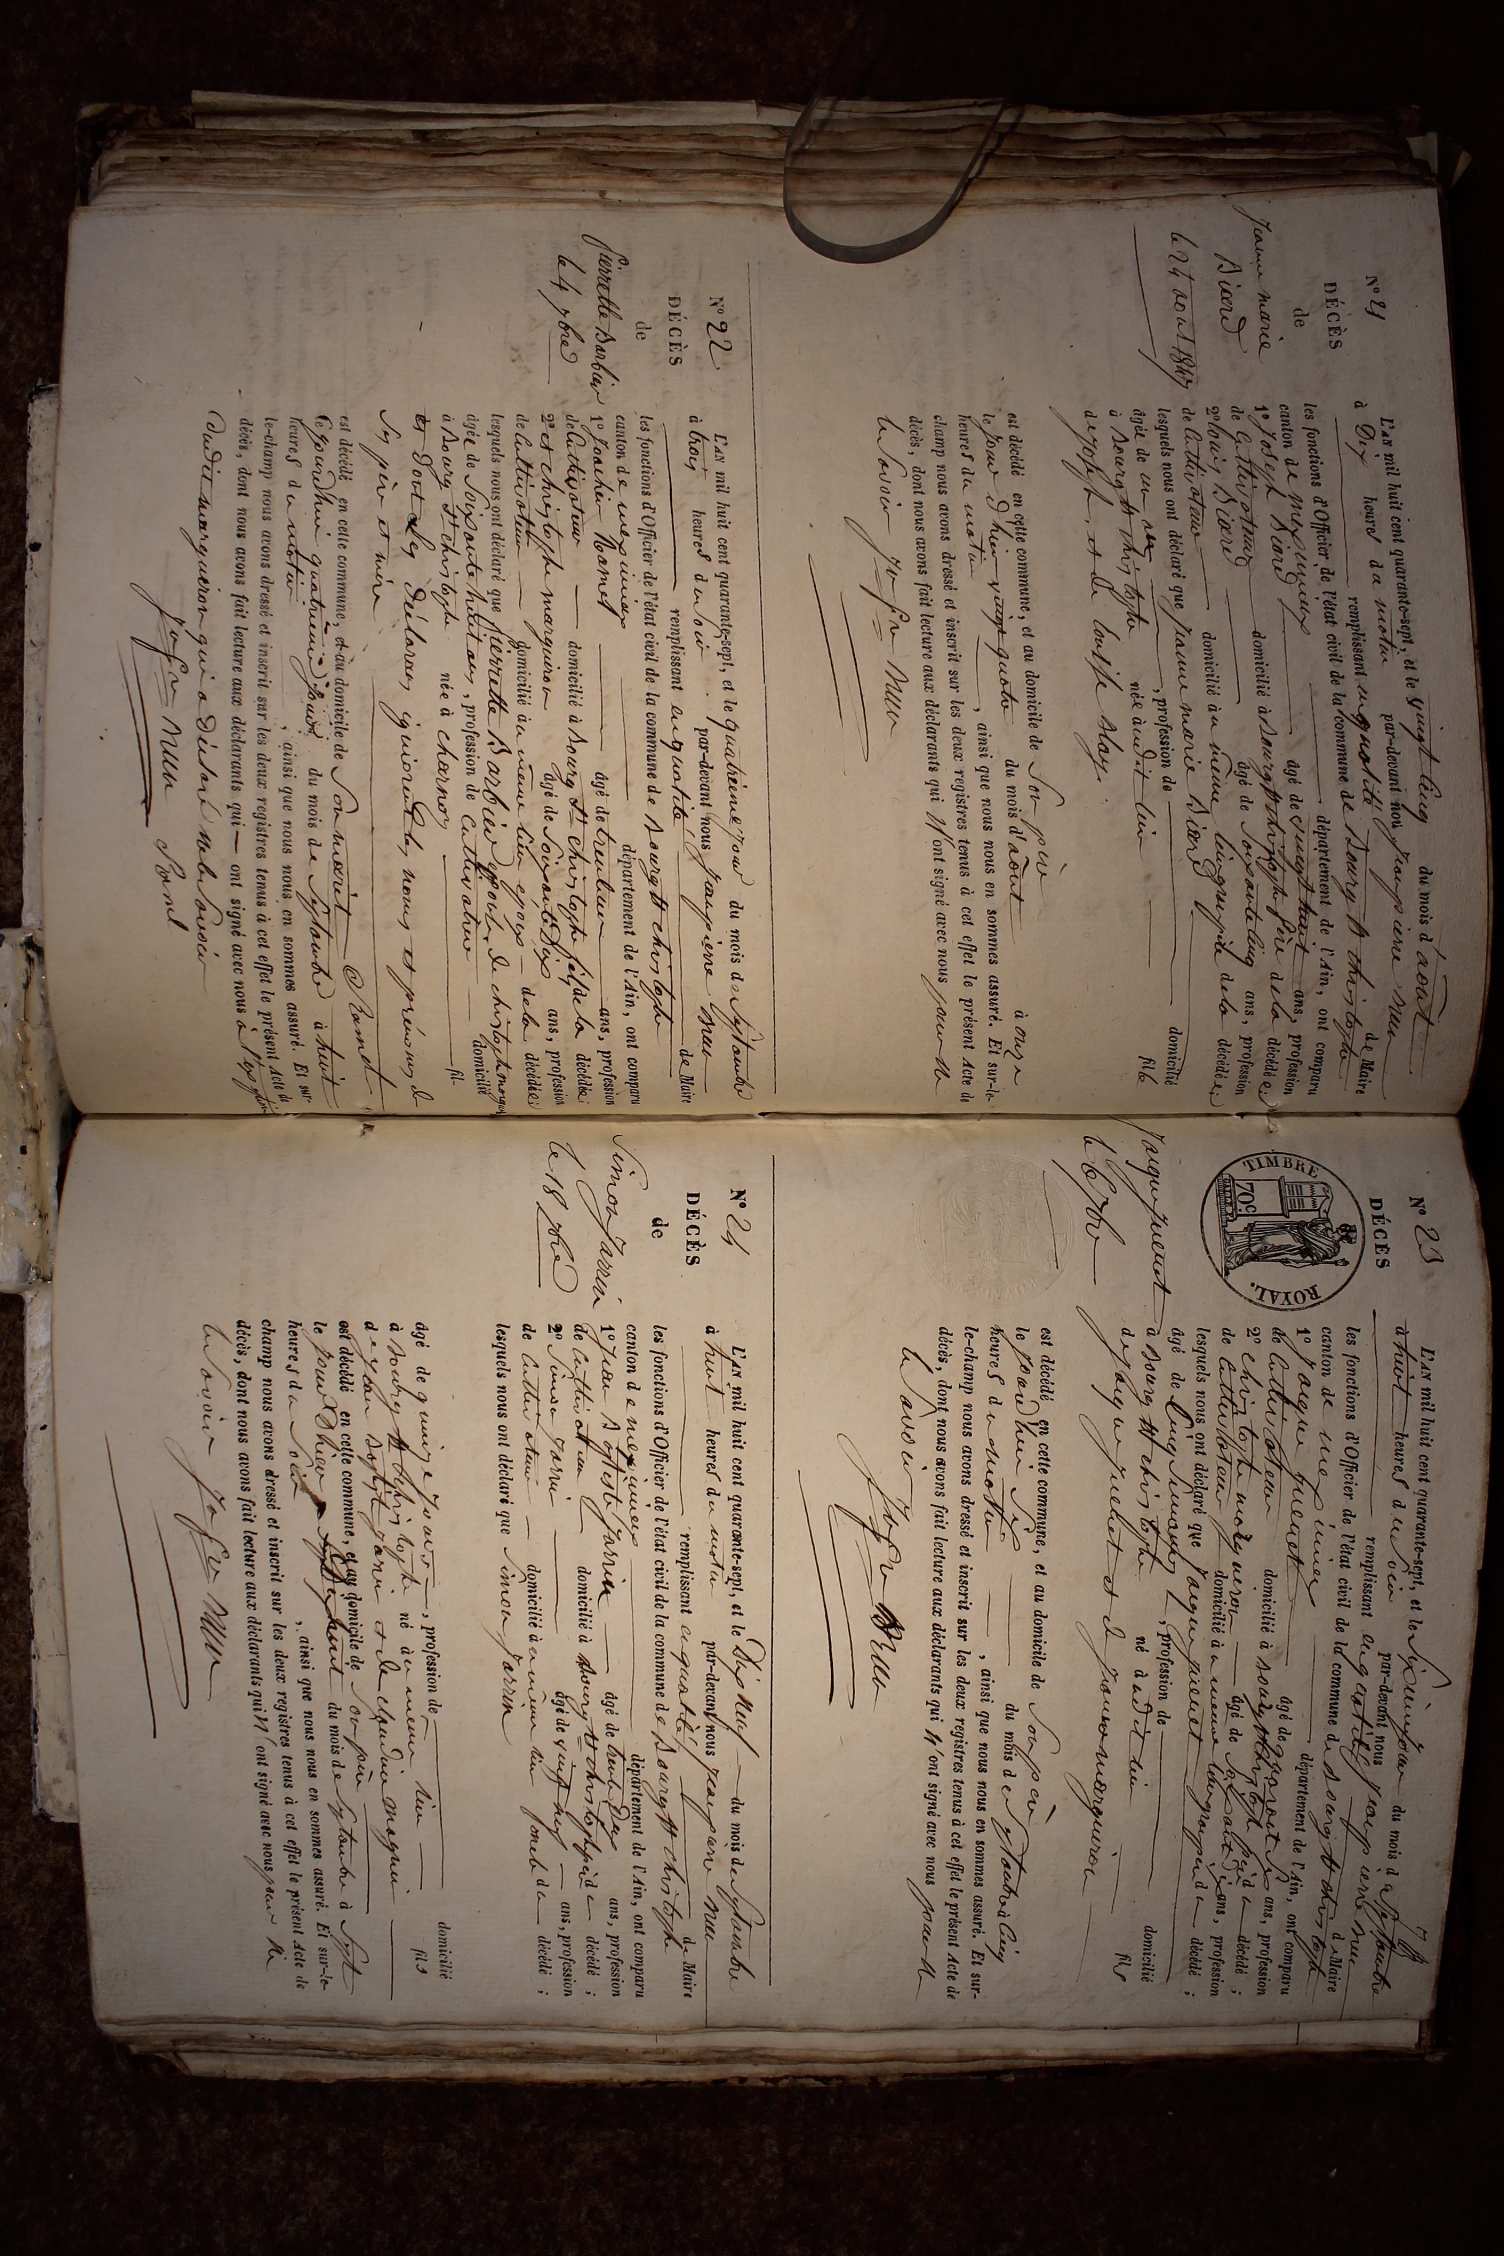 N° 21
DÉCÈS
de
Jeanne marie
Bicard
le 24 aout 1847
L'AN mil huit cent quarante-sept, et le vingt cinq du mois d'août
à Dix heures du matin par-devant nous jeanpierre
remplissant en qualité de Maire
les fonctions d'Officier de l'état civil de la commune de Bourg St christophe
canton de meximieux département de l'Ain, ont comparu
1° Joseph Bicard âgé de vingt huit ans, profession
de Cultivateur domicilié à Bourg St christophe père de la décédée;
2° louis Bicard âgé de Soixante cinq ans, profession
de Cultivateur domicilié au même lieu de la décédée;
lesquels nous ont déclaré que jeanne marie Bicard
âgée de un an, profession de domicilié
à Bourg St christophe née audit lieu fille
de joseph, et de louise
est décédé en cette commune, et au domicile de Son père
le jour d'hier vingt quatre du mois d'août à onze
heures du matin, ainsi que nous nous en sommes assuré. Et sur-le-
champ nous avons dressé et inscrit sur les deux registres tenus à cet effet le présent Acte de
décès, dont nous avons fait lecture aux déclarants qui n'ont signé avec nous pour ne
le Savoir
N° 22
DÉCÈS
de
Pierrette Barbier
le 4 7bre
L'AN mil huit cent quarante-sept, et le quatrième jour du mois de Septembre
à trois heures du soir par-devant nous jeanpierre
remplissant en qualité de Maire
les fonctions d'Officier de l'état civil de la commune de Bourg St christophe
canton de meximieux département de l'Ain, ont comparu
1° Joachin Ramel âgé de trente un ans, profession
de Cultivateur domicilié à Bourg St christophe de la décédée;
2° et christophe marguiron âgé de Soixante Dix ans, profession
de Cultivateur domicilié au même lieu epoux de la décédée;
lesquels nous ont déclaré que pierrette Barbier epouse de christophe
âgée de Soixante huit ans, profession de Cultivatrice domicilié
à Bourg St christophe née à charnoz fil
et Dont les Déclarans ignorent les noms et prénoms de
Ses père et mère
est décédé en cette commune, et au domicile de Son mari
Ce jourdhui quatrième jour du mois de Septembre à huit
heures du matin, ainsi que nous nous en sommes assuré. Et sur-
le-champ nous avons dressé et inscrit sur les deux registres tenus à cet effet le présent Acte de
décès, dont nous avons fait lecture aux déclarants qui ont signé avec nous à
dudit marguiron qui a Déclaré ne le Savoir
Ramel
N° 23
DÉCÈS
Jaque juenet
le 6 7bre
L'AN mil huit cent quarante-sept, et le Sixième jour du mois de Septembre
à huit heures du Soir par-devant nous
remplissant en qualité de Maire
les fonctions d'Officier de l'état civil de la commune de Bourg St christophe
canton de meximieux département de l'Ain, ont comparu
1° jaque juenet âgé de quarante Six ans, profession
de Cultivateur domicilié à Bourg St christophe père du décédé;
2° christophe marguiron âgé de Soixante Dix ans, profession
de Cultivateur domicilié au même lieu du décédé;
lesquels nous ont déclaré que jaque juenet
âgé de Cinq Semaines, profession de domicilié
à Bourg St christophe né audit lieu fils
de jaque juenet et de marguiron
est décédé en cette commune, et au domicile de Son père
le jourdhui Six du mois de Septembre à Cinq
heures du matin, ainsi que nous nous en sommes assuré. Et sur-
le-champ nous avons dressé et inscrit sur les deux registres tenus à cet effet le présent Acte de
décès, dont nous avons fait lecture aux déclarants qui n'ont signé avec nous pour ne
le Savoir
TIMBRE ROYAL.
70c
N° 24
DÉCÈS
de
Simon Jarrin
le 18 7bre
L'AN mil huit cent quarante-sept, et le Dix Neuf du mois de Septembre
à huit heures du matin par-devant nous jeanpierre
remplissant en qualité de Maire
les fonctions d'Officier de l'état civil de la commune de Bourg St christophe
canton de meximieux département de l'Ain, ont comparu
1° jean Baptiste jarrin âgé de trente Deux ans, profession
de Cultivateur domicilié à Bourg St christophe père du décédé;
2° Simon jarrin âgé de vingt neuf ans, profession
de Cultivateur domicilié au même lieu oncle du décédé;
lesquels nous ont déclaré que Simon jarrin
âgé de quinze jours, profession de domicilié
à Bourg St christophe né au même lieu fils
de jean Baptiste jarrin et de claudine
est décédé en cette commune, et au domicile de Son père
le jour d'hier Dix huit du mois de Septembre à Sept
heures du Soir, ainsi que nous nous en sommes assuré. Et sur-le-
champ nous avons dressé et inscrit sur les deux registres tenus à cet effet le présent Acte de
décès, dont nous avons fait lecture aux déclarants qui n'ont signé avec nous pour ne
le Savoir